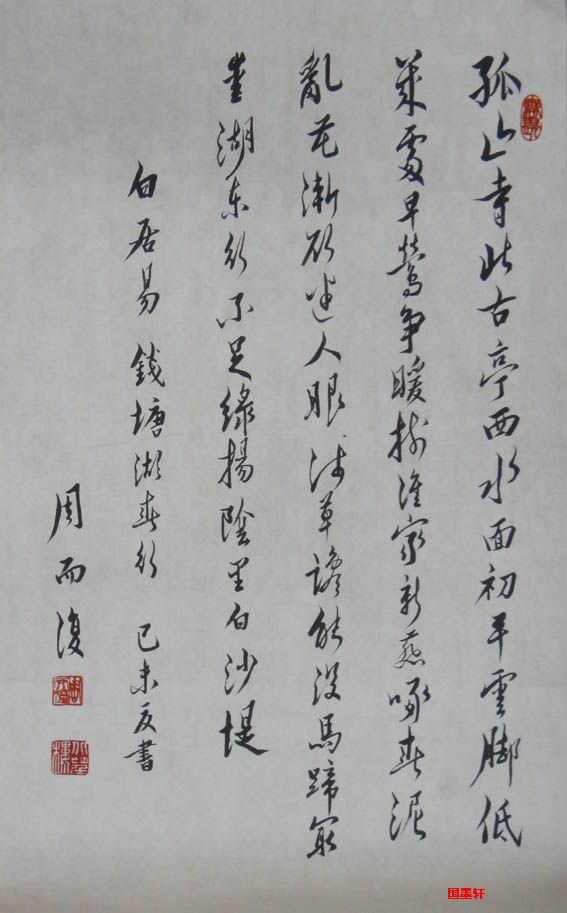 孤山寺北古亭西水面初平雲脚低
幾處早鶯争暖樹誰家新燕啄春泥
亂花漸欲迷人眼浅草纔能没馬蹄最
愛湖東行不足綠楊陰里白沙堤
白居易 錢塘湖春行 己未夏書
周而復
国墨轩